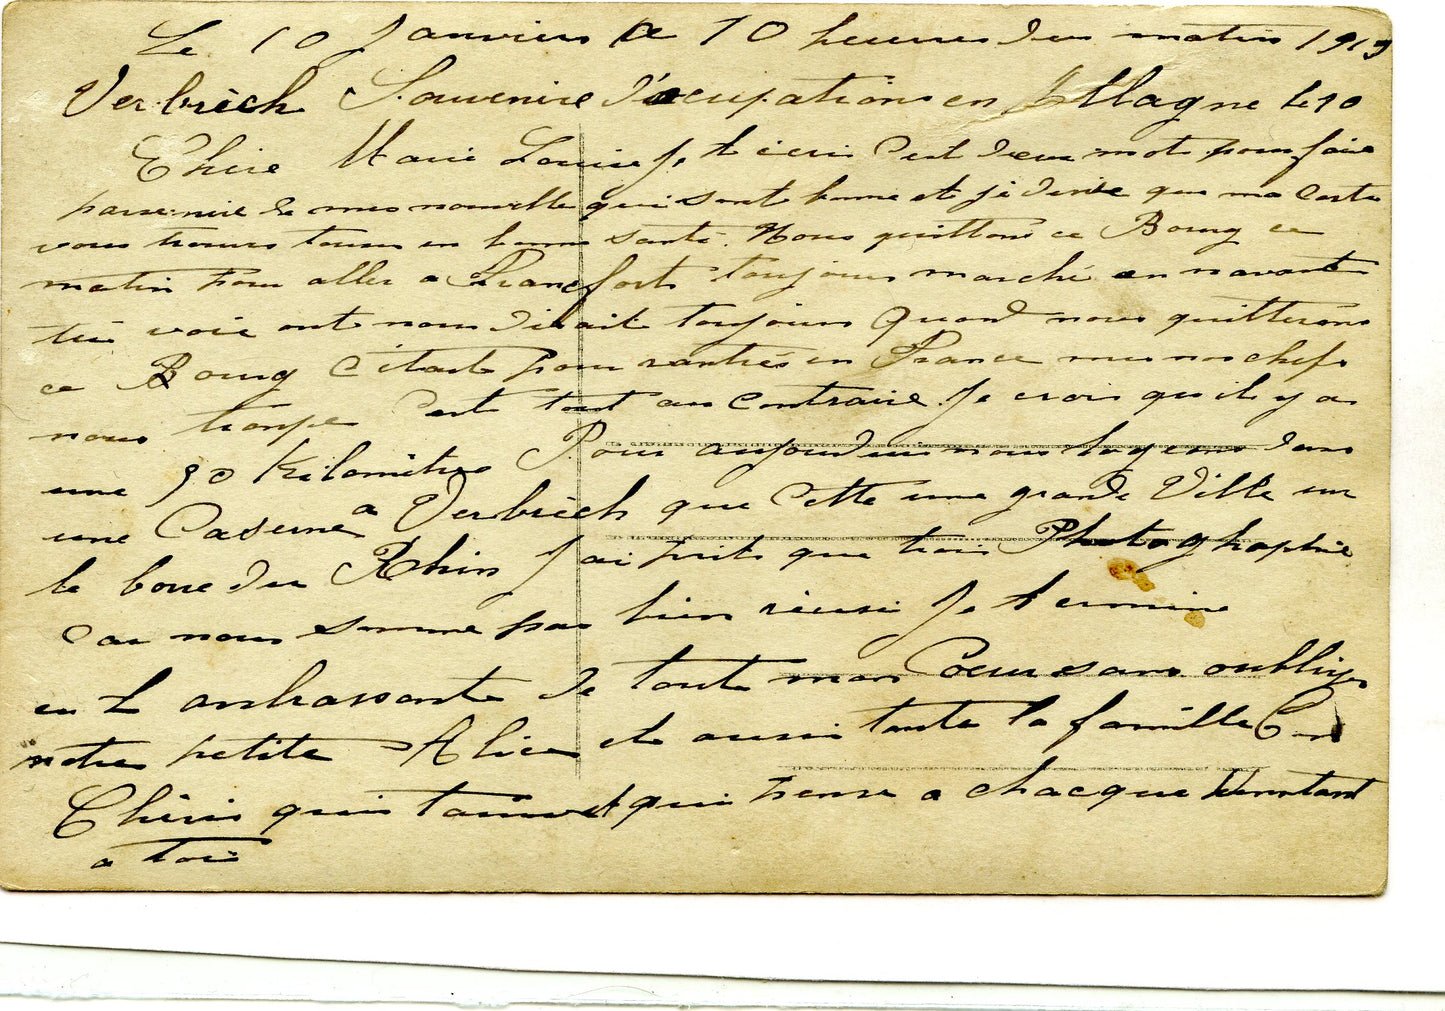 Le 10 Janvier a 10 heures du matin 1919
Verbrich Souvenire d'ocupations en Allagne le 10
Chére Marie Louise Je t ecrit C'est deux mots pour faire
parvenire de mes nouvelle qui sont bonne et je desire que ma Carte
vous trouve tous en bonne santé. Nous quittons ce Bourg ce
matin pour aller a Francfort toujours marché en navant
tu voie ont nous disait toujours Quand nous quitterons
ce Bourg C'etait pour rentrés en France mes nos chefs
nous trompe C'est tout au Contraire Je crois qu'il y a
une 90 kilomètre Pour aujourdui nous logeons dans
une Caserne a Verbrich que Cette une grande Ville sur
le bore du Rhin J'ai prit que trois Photoghaphie
Car nous somme pas bien réussi Je t ermine
en t anbrassante de tout mon Coeur sans oublliger
notre petite Alice et aussi toute la famille
Chéris qui t'aime et qui pense a chacque
a toi